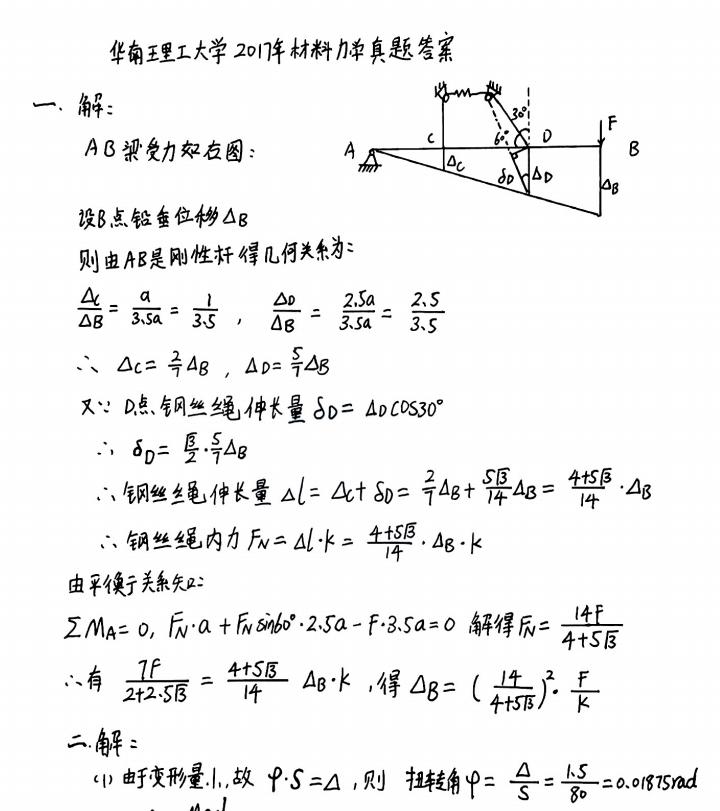 华南王里工大学 2017年材料力学真题答案
一. 解:
AB梁受力如右图:
A C D B F
30° 60° ΔC δD ΔD ΔB
设B点铅垂位移ΔB
则由AB是刚性杆得几何关系为:
ΔC/ΔB = a/3.5a = 1/3.5 , ΔD/ΔB = 2.5a/3.5a = 2.5/3.5
∴ ΔC = 2/7 ΔB , ΔD = 5/7 ΔB
又∵ D点钢丝绳伸长量 δD = ΔD COS30°
∴ δD = √3/2 · 5/7 ΔB
∴ 钢丝绳伸长量 Δl = ΔC + δD = 2/7 ΔB + 5√3/14 ΔB = 4+5√3/14 · ΔB
∴ 钢丝绳内力 FN = Δl·k = 4+5√3/14 · ΔB · k
由平衡于关系知:
ΣMA = 0, FN·a + FN sin60°·2.5a − F·3.5a = 0 解得 FN = 14F/4+5√3
∴有 7F/2+2.5√3 = 4+5√3/14 ΔB·k , 得 ΔB = (14/4+5√3)² · F/K
二. 解:
(1) 由于变形量小, 故 φ·S = Δ , 则 扭转角 φ = Δ/S = 1.5/80 = 0.01875rad